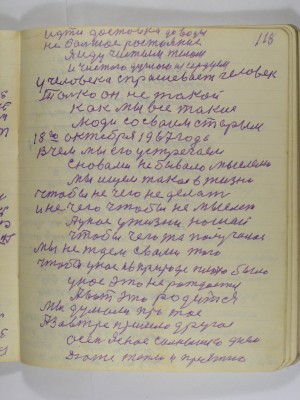 118
идти достойна до воды
не должное ростояние
Я иду чистым телом
и чистого душою и сердцем
у человека спрашевает человек
Только он не такой
как мы все такие
люди со своим старым
18го октября 1967 года
В чем мы его встречаем
Словами не бывало мыслями
мы ищем такое в жизни
чтобы не чего не делат
и не чего чтобы не мыслет
А у нас у жизни
чтобы чего то получилос
мы не ждем своим того
чтобы у нас в природе было
у нас это не рождается
А вот это родится
мы думали про тое
А завтре пришло другое
осеннее солнышко
даже тепло и приятно